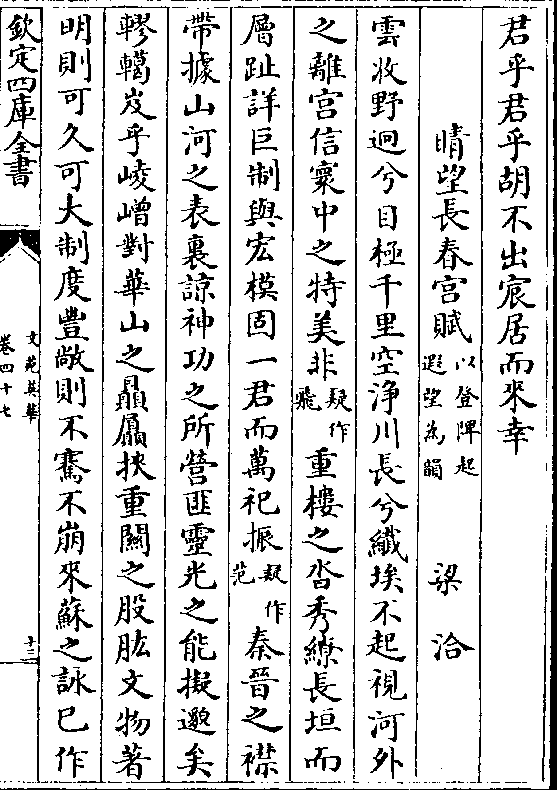 君乎君乎胡不出宸居而來幸
晴望長春宫賦以登陴起遐望為韻 梁洽
雲收野迥兮目極千里空浄川長兮纎埃不起視河外
之離宫信寰中之特美非疑作飛重樓之沓秀繚長垣而
層趾詳巨制與宏模固一君而萬祀振疑作范秦晉之襟
帶據山河之表裏諒神功之所營匪靈光之能擬邈矣
轇轕岌乎崚嶒對華山之贔屭挾重關之股肱文物著
明則可久可大制度豐敞則不騫不崩來蘇之詠已作
欽定四庫全書
文苑英華
卷四十七
十三